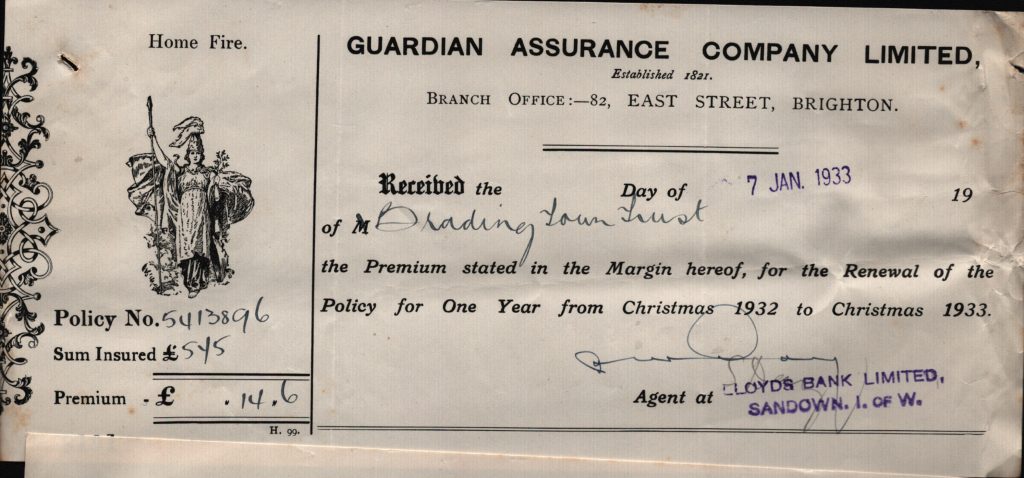 Home Fire.
Policy No. 5413896
Sum Insured £ 545
Premium - £ .14.6
H. 99.
GUARDIAN ASSURANCE COMPANY LIMITED,
Established 1821.
BRANCH OFFICE:—82, EAST STREET, BRIGHTON.
Received the Day of 7 JAN. 1933 19
of M Brading Town Trust
the Premium stated in the Margin hereof, for the Renewal of the
Policy for One Year from Christmas 1932 to Christmas 1933.
Agent at LLOYDS BANK LIMITED,
SANDOWN. I. OF W.